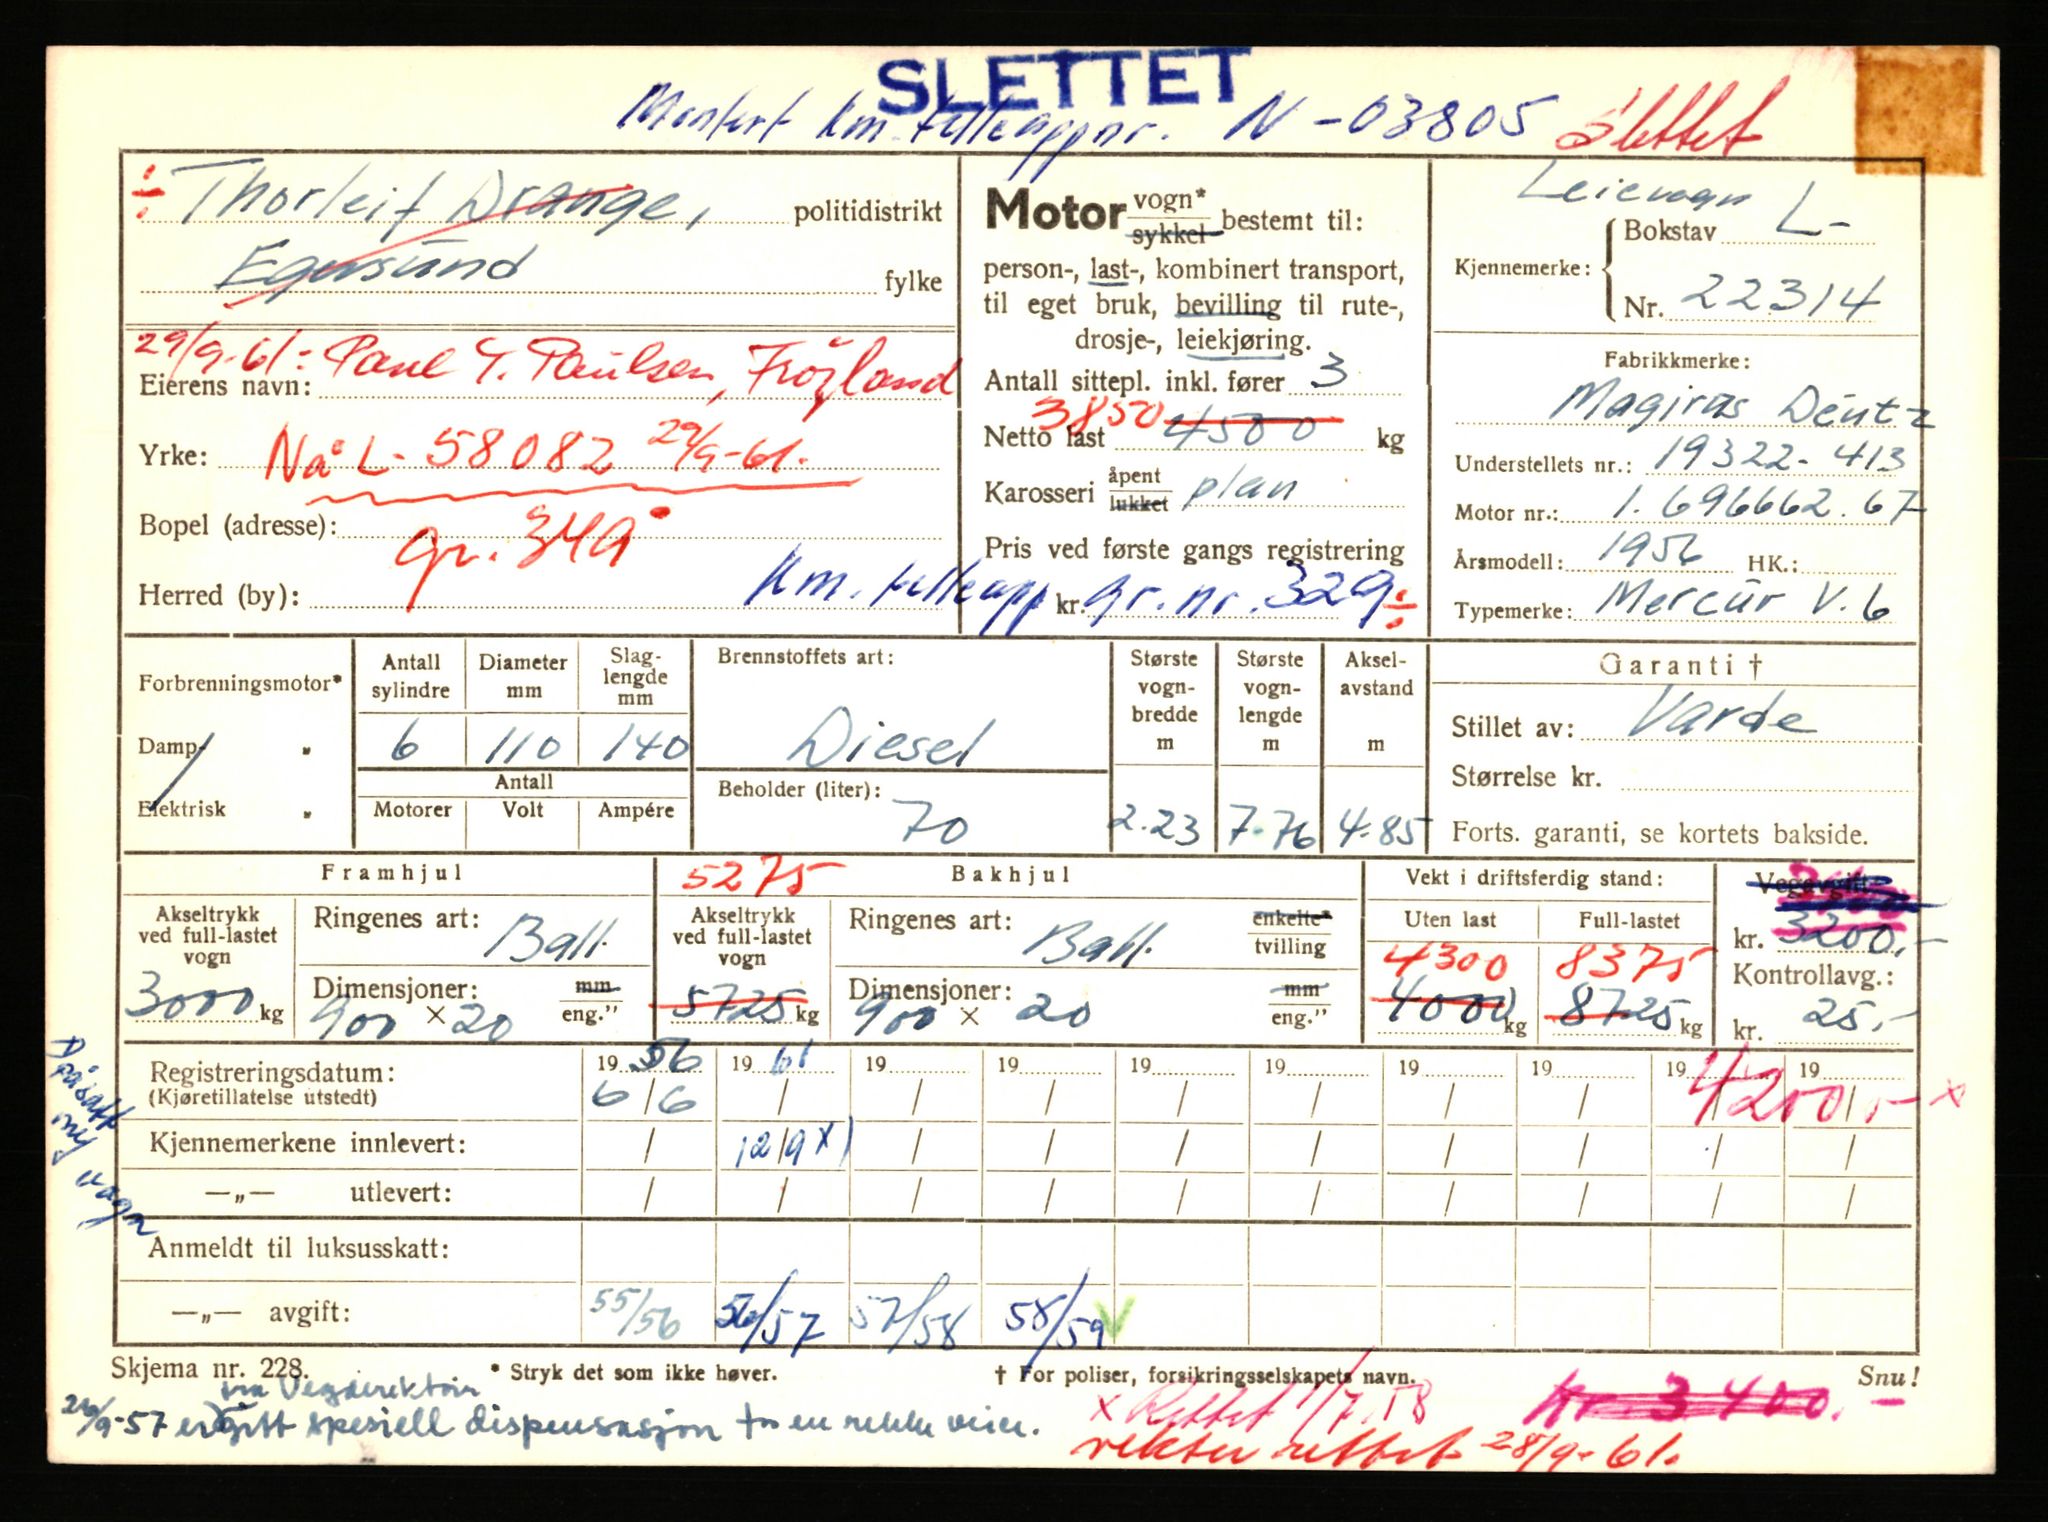 SLETTET
Montert km. telleapp nr. N-03805 Slettet
÷ Thorleif Drange, politidistrikt
Egersund fylke
29/9-61: Paul T. Paulsen, Frøyland
Eierens navn:
Yrke: Nå L- 58082 29/9-61.
Bopel (adresse): gr. 349
Herred (by): Km. telleapp kr. gr. nr. 329 ÷
Motor vogn* sykkel bestemt til:
person-, last-, kombinert transport,
til eget bruk, bevilling til rute-,
drosje-, leiekjøring.
Antall sittepl. inkl. fører 3
3850
Netto last 4500 kg
Karosseri åpent lukket plan
Pris ved første gangs registrering
Leievogn
Kjennemerke: Bokstav L-
Nr. 22314
Fabrikkmerke:
Magirus Deutz
Understellets nr.: 19322-413
Motor nr.: 1.696662.67
Årsmodell: 1956 HK.:
Typemerke: Mercur V.6
Forbrenningsmotor*
Damp- „
Elektrisk „
Antall sylindre 6
Diameter mm 110
Slag-lengde mm 140
Antall
Motorer Volt Ampére
Brennstoffets art:
Diesel
Beholder (liter):
70
Største vogn-bredde m 2.23
Største vogn-lengde m 7.76
Aksel-avstand m 4.85
Garanti †
Stillet av: Varde
Størrelse kr.
Forts. garanti, se kortets bakside.
Framhjul
Akseltrykk ved full-lastet vogn
3000 kg
Ringenes art: Ball.
Dimensjoner: mm eng."
900 × 20
5275 Bakhjul
Akseltrykk ved full-lastet vogn
5725 kg
Ringenes art: Ball. enkelte* tvilling
Dimensjoner: mm eng."
900 × 20
Vekt i driftsferdig stand:
Uten last Full-lastet
4300 8375
4000 kg 8725 kg
Vegavgift:
kr. 3200,-
Kontrollavg.:
kr. 25,-
Registreringsdatum: 19 56 19 61 19 19 19 19 19 19 19 19
(Kjøretillatelse utstedt) 6/6 / / / / / / / / /
4200,- x
Kjennemerkene innlevert: / 12/9 x) / / / / / / / /
—„— utlevert: / / / / / / / / / /
Påsatt ny vogn
Anmeldt til luksusskatt:
—„— avgift: 55/56 56/57 57/58 58/59 V
Skjema nr. 228. * Stryk det som ikke høver. † For poliser, forsikringsselskapets navn. Snu!
fra Vegdirektøren
29/9-57 er gitt spesiell dispensasjon for en rekke veier.
x Rettet 1/7.58 kr. 3400.-
vekter rettet 28/9-61.